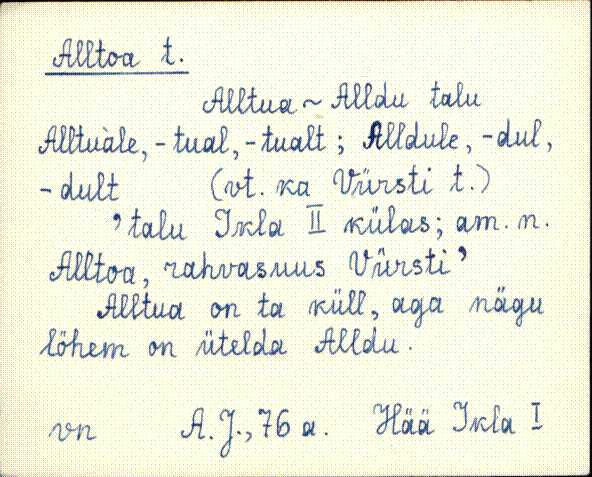 Alltoa t.
Alltua ~ Alldu talu
Alltuàle, -tual, -tualt; Alldule, -dul,
-dult (vt. ka Vürsti t.)
'talu Ikla II külas; am. n.
Alltoa, rahvasuus Vürsti'
Alltua on ta küll, aga nägu
löhem on ütelda Alldu.
vn A. J., 76 a. Hää Ikla I